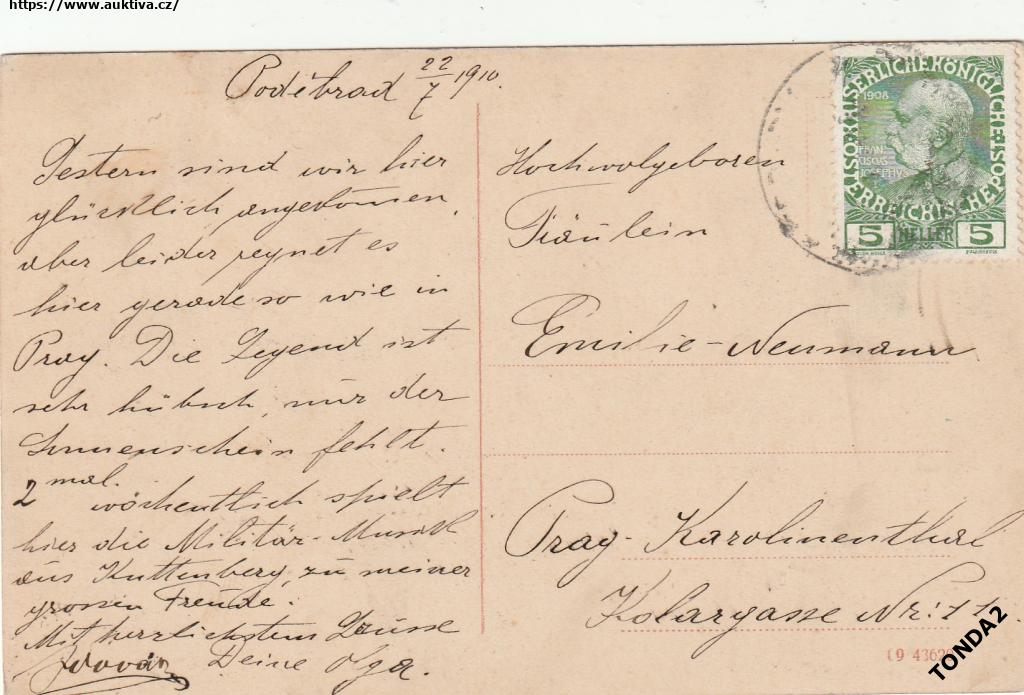 https://www.auktiva.cz/
Poděbrad 22/7 1910.
Gestern sind wir hier
glücklich angekommen,
aber leider regnet es
hier gerade so wie in
Prag. Die Gegend ist
sehr hübsch, nur der
Sonnenschein fehlt.
2 mal. wöchentlich spielt
hier die Militär-Musik
aus Kuttenberg, zu meiner
grossen Freude.
Mit herzlichsten Grüsse
Deine Olga.
Hochwolgeboren
Fräulein
Emilie Neumann
Prag-Karolinenthal
Kolargasse Nr: 11
KAISERLICHE KÖNIGLICHE
ÖSTERREICHISCHE POST
1908
FRAN
CISCVS
JOSEPHVS
5 HELLER 5
TONDA2